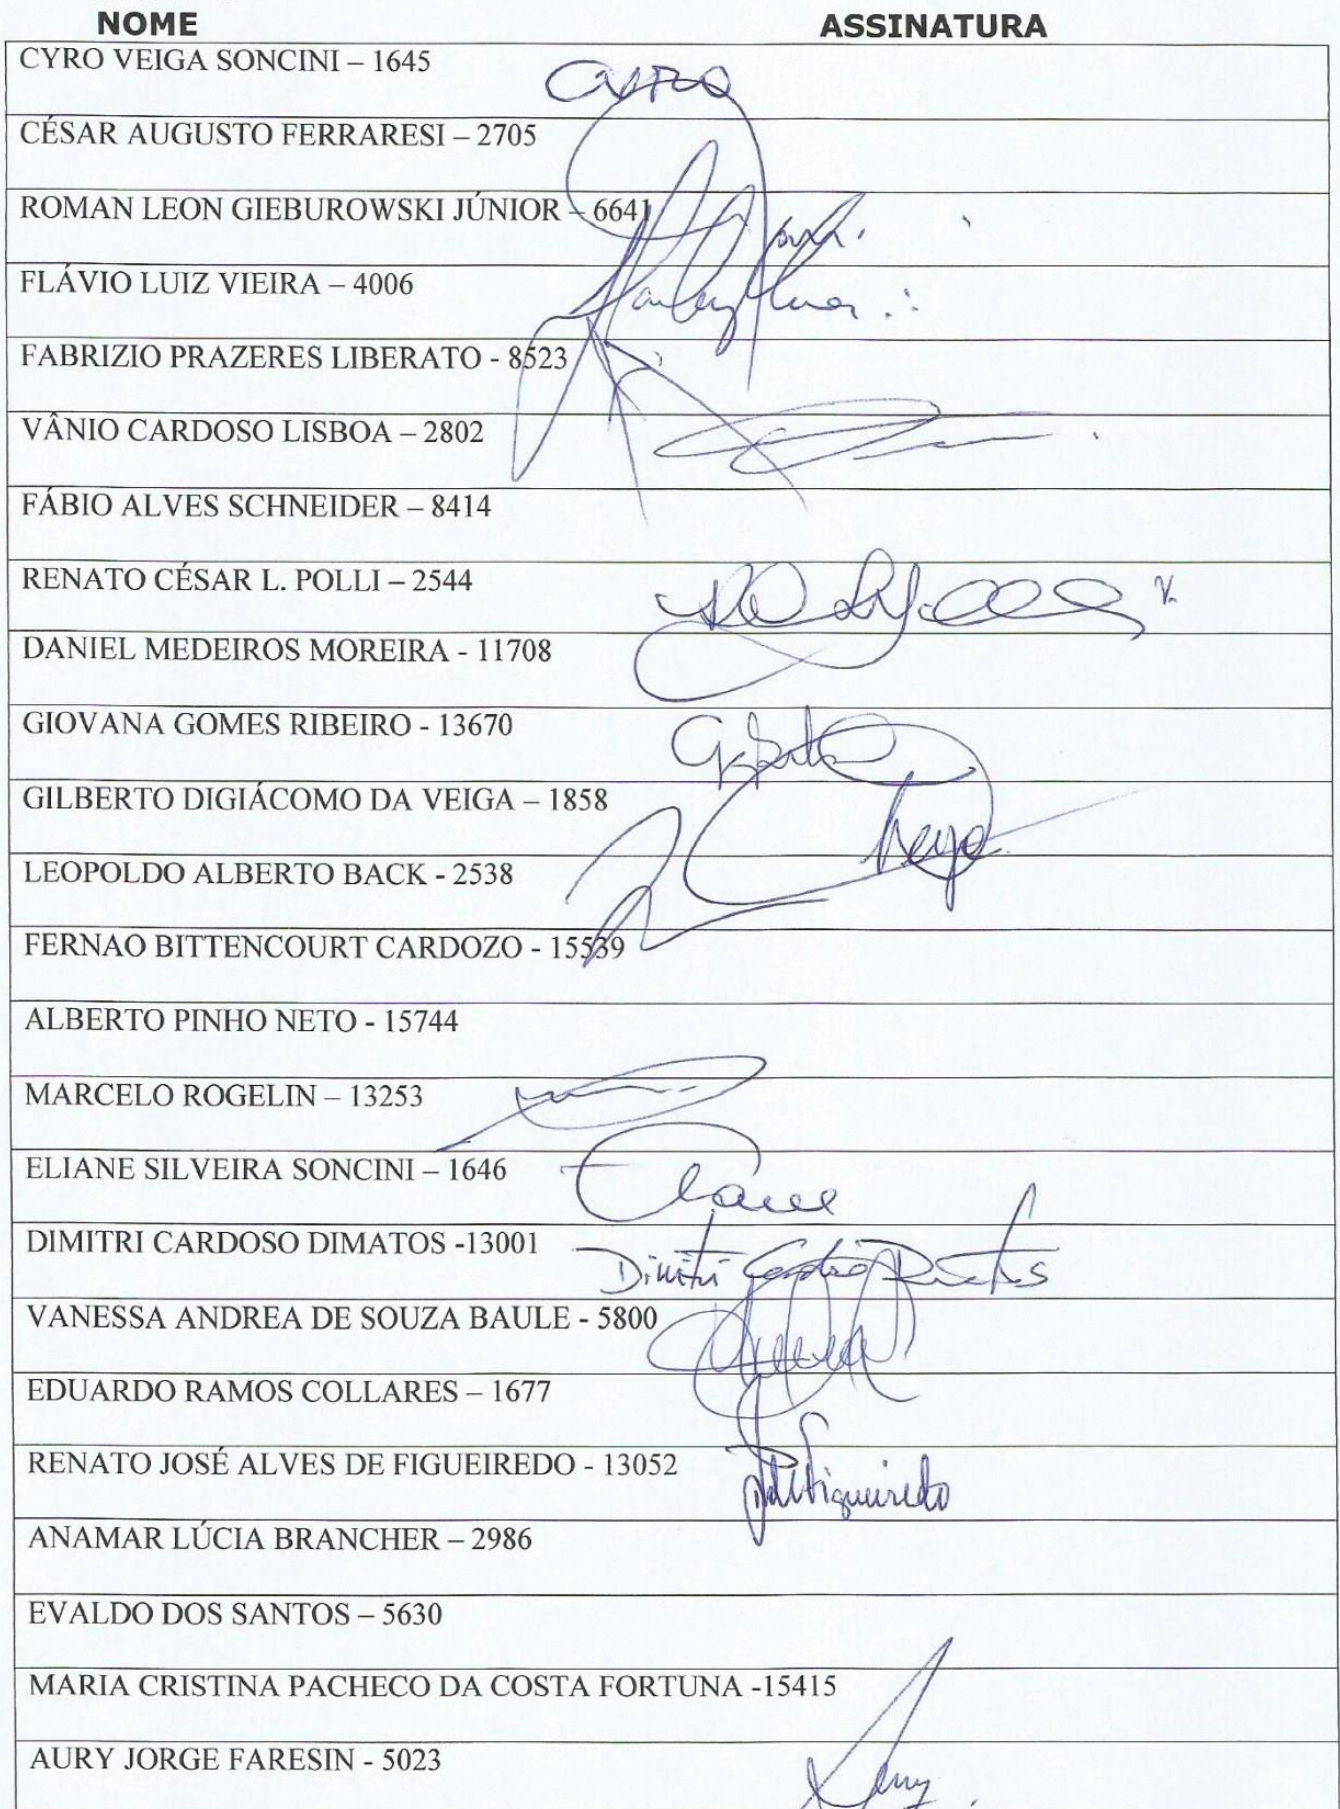 NOME ASSINATURA
CYRO VEIGA SONCINI – 1645
CÉSAR AUGUSTO FERRARESI – 2705
ROMAN LEON GIEBUROWSKI JÚNIOR – 6641
FLÁVIO LUIZ VIEIRA – 4006
FABRIZIO PRAZERES LIBERATO - 8523
VÂNIO CARDOSO LISBOA – 2802
FÁBIO ALVES SCHNEIDER – 8414
RENATO CÉSAR L. POLLI – 2544
DANIEL MEDEIROS MOREIRA - 11708
GIOVANA GOMES RIBEIRO - 13670
GILBERTO DIGIÁCOMO DA VEIGA – 1858
LEOPOLDO ALBERTO BACK - 2538
FERNAO BITTENCOURT CARDOZO - 15539
ALBERTO PINHO NETO - 15744
MARCELO ROGELIN – 13253
ELIANE SILVEIRA SONCINI – 1646 Eliane
DIMITRI CARDOSO DIMATOS -13001 Dimitri Cardoso Dimatos
VANESSA ANDREA DE SOUZA BAULE - 5800
EDUARDO RAMOS COLLARES – 1677
RENATO JOSÉ ALVES DE FIGUEIREDO - 13052 Figueiredo
ANAMAR LÚCIA BRANCHER – 2986
EVALDO DOS SANTOS – 5630
MARIA CRISTINA PACHECO DA COSTA FORTUNA -15415
AURY JORGE FARESIN - 5023